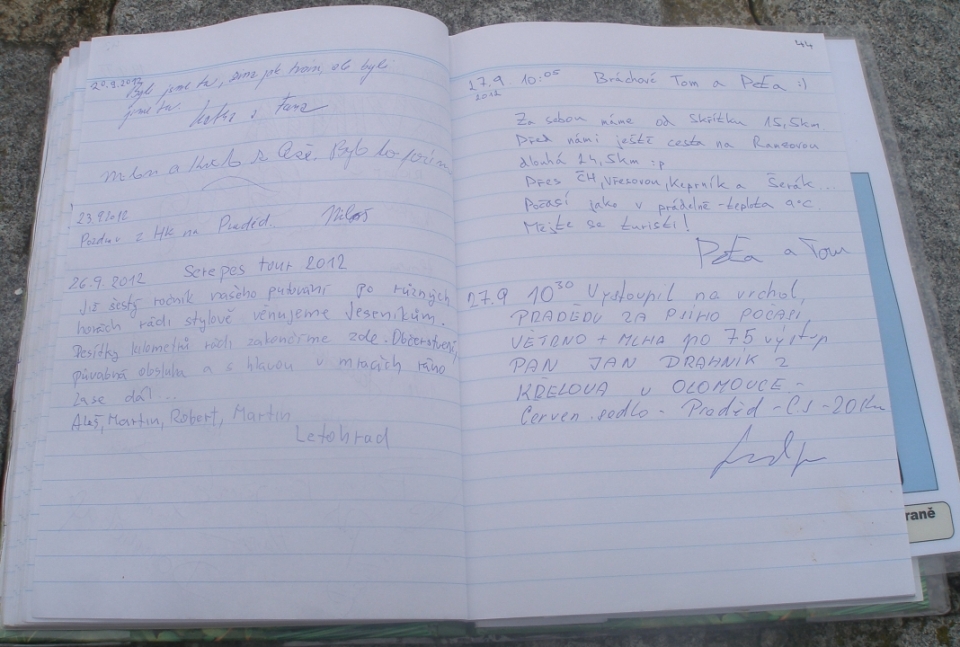 20.9.2012
Byli jsme tu,
jsme tu.
23.9.2012
Pozdrav z HK na Praděd. Miloš
26.9.2012 Serepes tour 2012
Již šestý ročník našeho putování po různých
horách rádi stylově věnujeme Jeseníkům.
Desítky kilometrů rádi zakončíme zde. Občerstvení,
půvabná obsluha a s hlavou v mracích ráno
zase dál...
Aleš, Martin, Robert, Martin
Letohrad
44
27.9 10:05 Bráchové Tom a Peťa :)
2012
Za sebou máme od Skřítku 15,5km
Před námi ještě cesta na Ramzovou
dlouhá 24,5km :p
Přes ČH, Vřesovou, Keprník a Šerák...
Počasí jako v prádelně - teplota 9°C.
Mějte se turisti!
Peťa a Tom
27.9 10³⁰ Vystoupil na vrchol,
PRADĚDU ZA
VĚTRNO + MLHA po 75 výstup
PAN JAN DRAHNÍK Z
KŘELOVA u OLOMOUCE -
Červen. sedlo - Praděd - ČS - 20km
raně